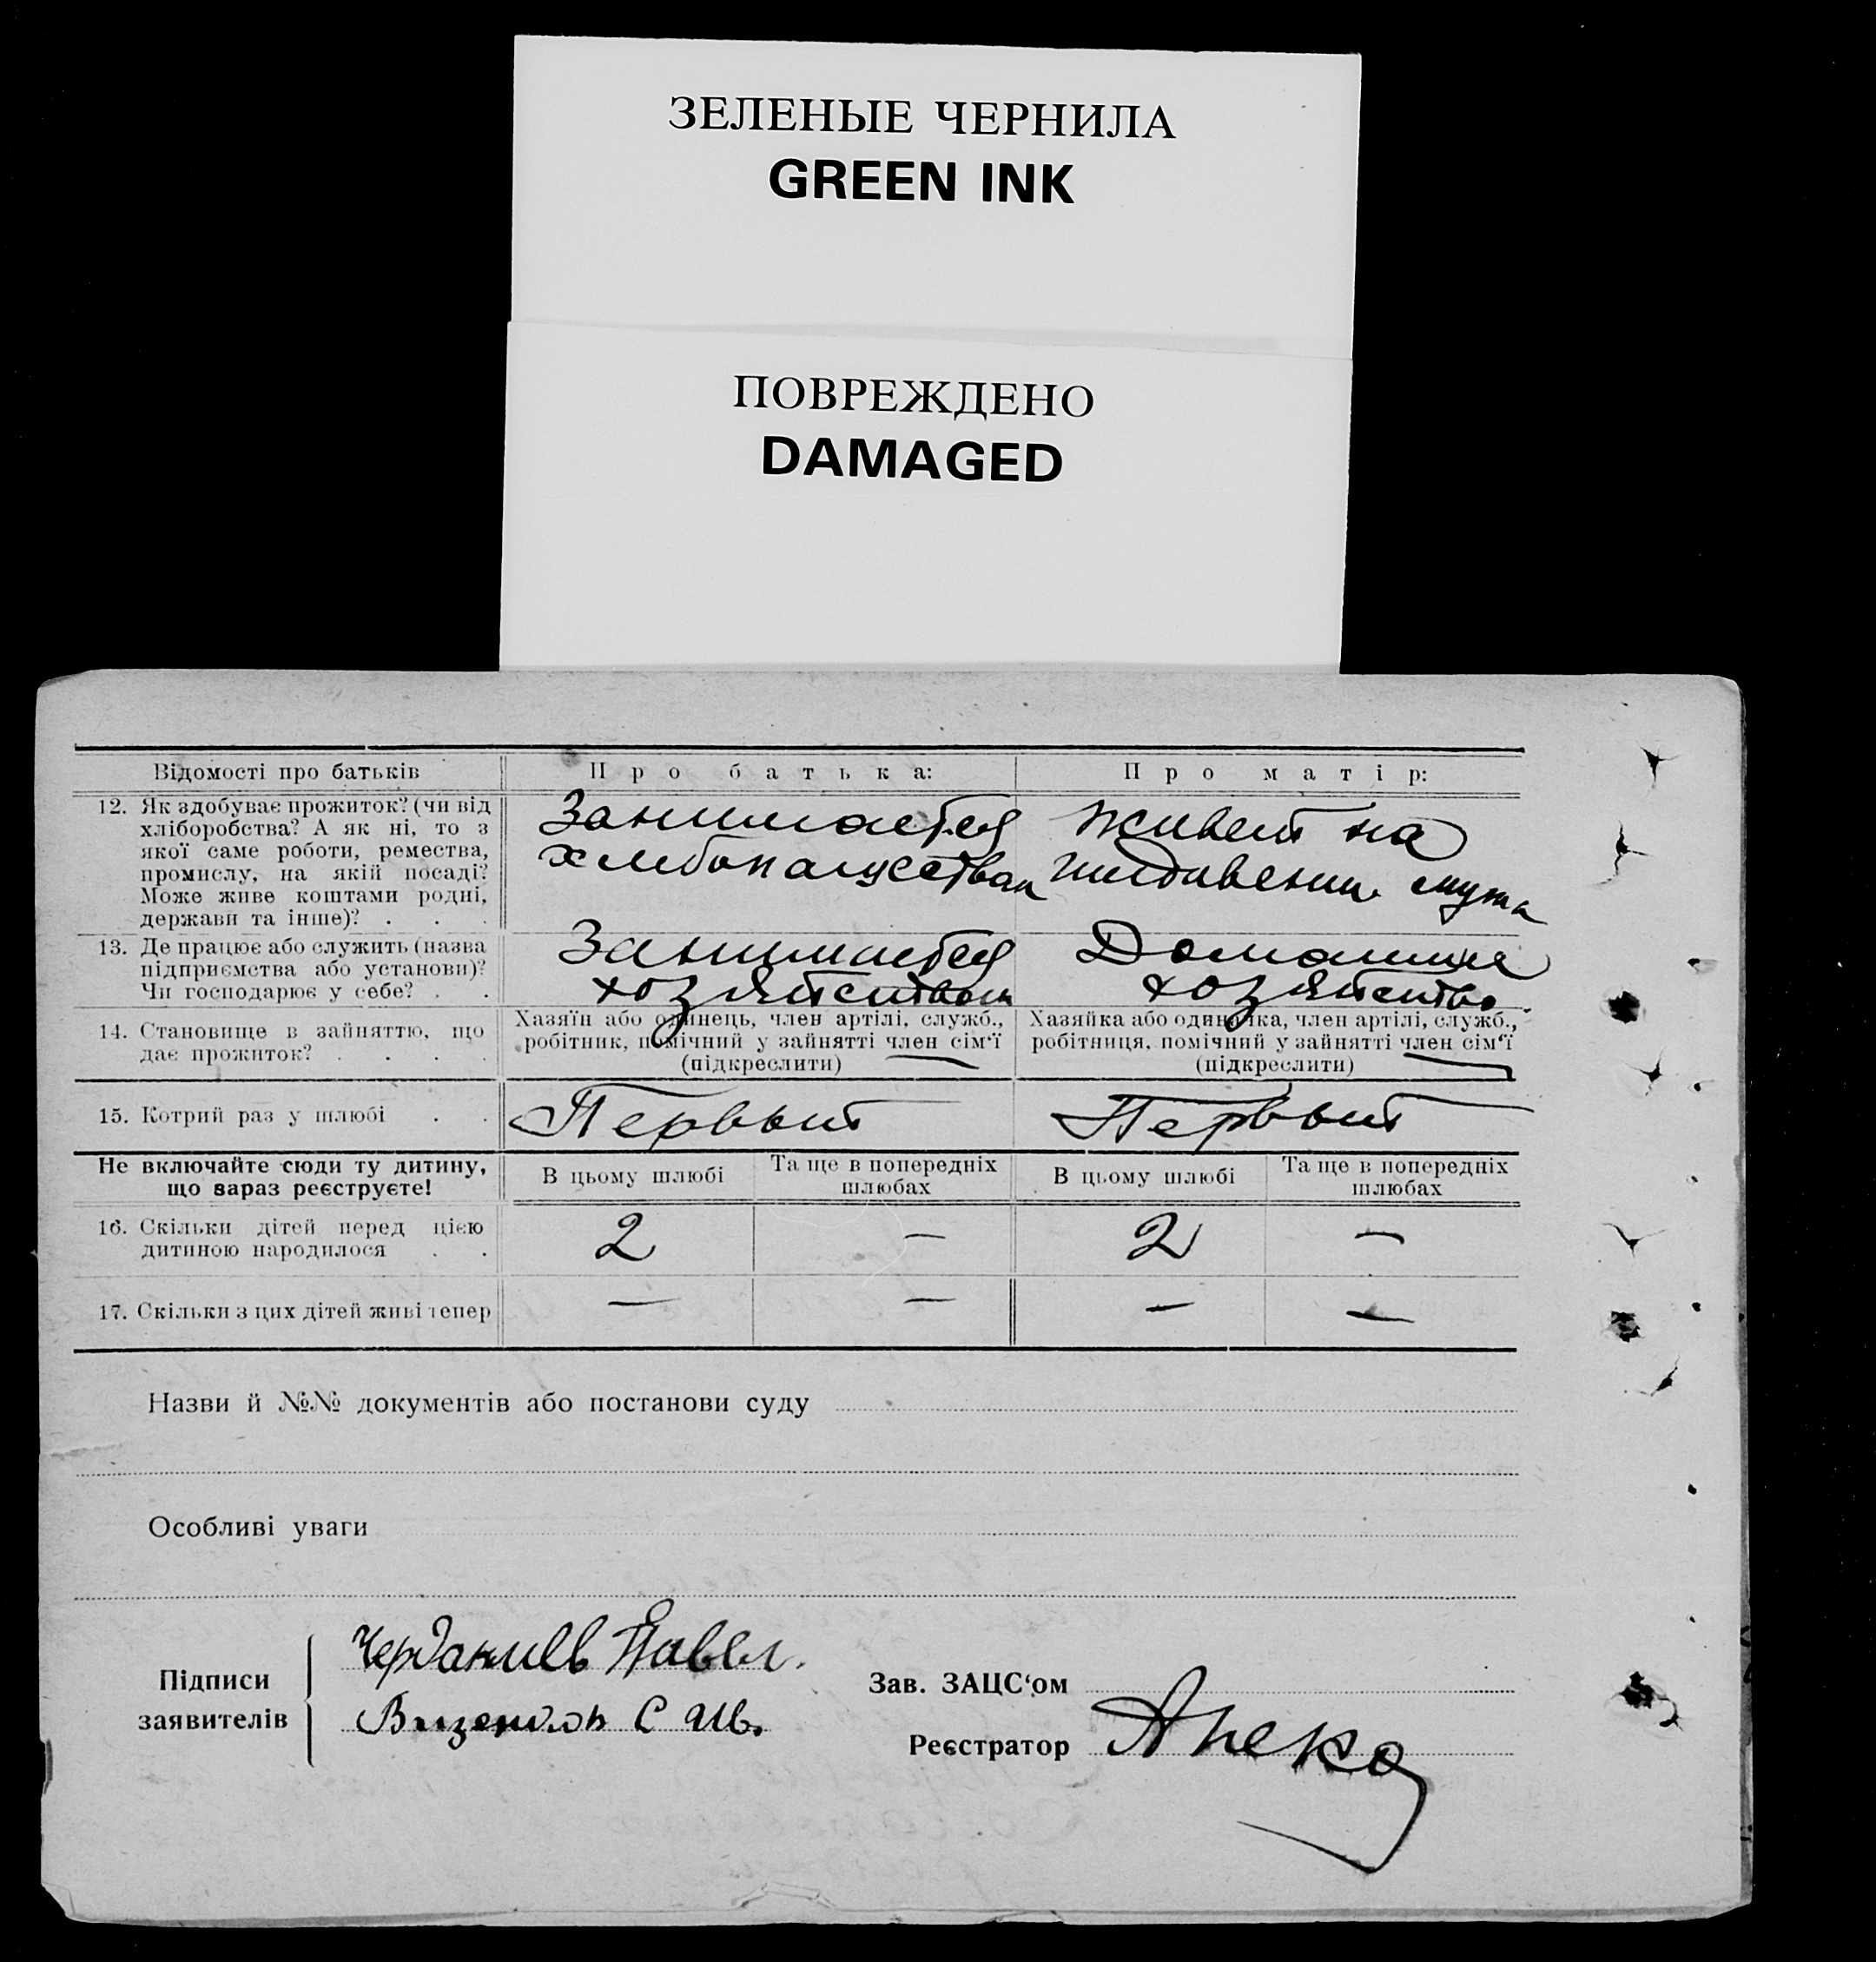 ЗЕЛЕНЫЕ ЧЕРНИЛА
GREEN INK
ПОВРЕЖДЕНО
DAMAGED
Відомості про батьків
Про батька:
Про матір:
12. Як здобуває прожиток? (чи від
хліборобства? А як ні, то з
якої саме роботи, ремества,
промислу, на якій посаді?
Може живе коштами родні,
держави та інше)? . . .
Занимается
хлебопашеством
живет на
иждивении мужа
13. Де працює або служить (назва
підприємства або установи)?
Чи господарює у себе? . .
Занимается
хозяйством
Домашнее
хозяйство
14. Становище в зайняттю, що
дає прожиток? . . . .
Хазяїн або одинець, член артілі, служб.,
робітник, помічний у зайнятті член сім'ї
(підкреслити)
Хазяйка або одиначка, член артілі, служб.,
робітниця, помічний у зайнятті член сім'ї
(підкреслити)
15. Котрий раз у шлюбі . .
Первый
Первый
Не включайте сюди ту дитину,
що зараз реєструєте!
В цьому шлюбі
Та ще в попередніх
шлюбах
В цьому шлюбі
Та ще в попередніх
шлюбах
16. Скільки дітей перед цією
дитиною народилося . .
2
—
2
—
17. Скільки з цих дітей живі тепер
—
—
—
—
Назви й №№ документів або постанови суду
Особливі уваги
Підписи
заявителів
Павел.
С Ив.
Зав. ЗАЦС'ом
Реєстратор